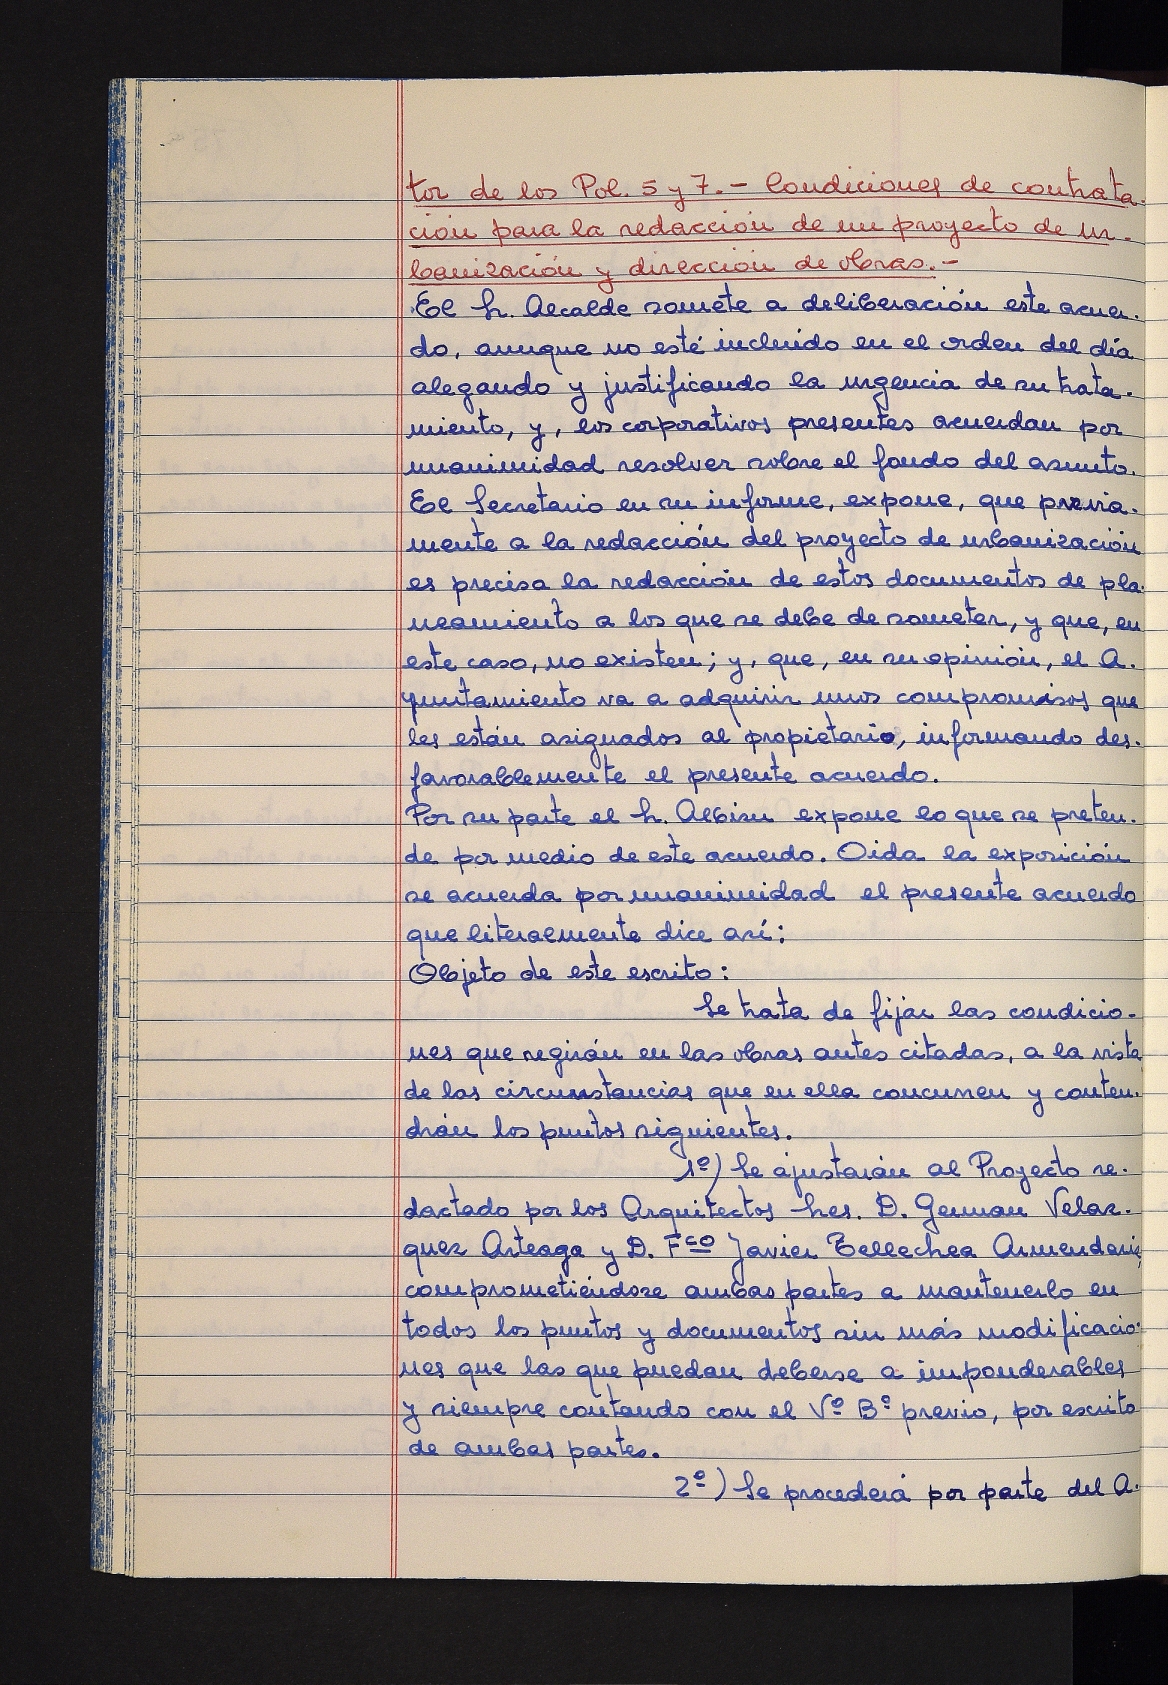 tor de los Pol. 5 y 7.- Condiciones de contrata-
ción para la redacción de un proyecto de ur-
banización y dirección de obras.-
El Sr. Alcalde somete a deliberación este acuer-
do, aunque no esté incluido en el orden del día
alegando y justificando la urgencia de su trata-
miento, y, los corporativos presentes acuerdan por
unanimidad resolver sobre el fondo del asunto.
El Secretario en su informe, expone, que previa-
mente a la redacción del proyecto de urbanización
es precisa la redacción de estos documentos de pla-
neamiento a los que se debe de someter, y que, en
este caso, no existen; y, que, en su opinión, el A-
yuntamiento va a adquirir unos compromisos que
les están asignados al propietario, informando des-
favorablemente el presente acuerdo.
Por su parte el Sr. Albisu expone lo que se preten-
de por medio de este acuerdo. Oida la exposición
se acuerda por unanimidad el presente acuerdo
que literalmente dice así:
Objeto de este escrito:
Se trata de fijar las condicio-
nes que regirán en las obras antes citadas, a la vista
de las circunstancias que en ella concurren y conten-
drán los puntos siguientes.
1º) Se ajustarán al Proyecto re-
dactado por los Arquitectos Sres. D. German Velaz-
quez Arteaga y D. Fco Javier Tellechea Armendariz,
comprometiéndose ambas partes a mantenerlo en
todos los puntos y documentos sin más modificacio-
nes que las que puedan deberse a imponderables
y siempre contando con el Vº Bº previo, por escrito
de ambas partes.
2º) Se procederá por parte del A-